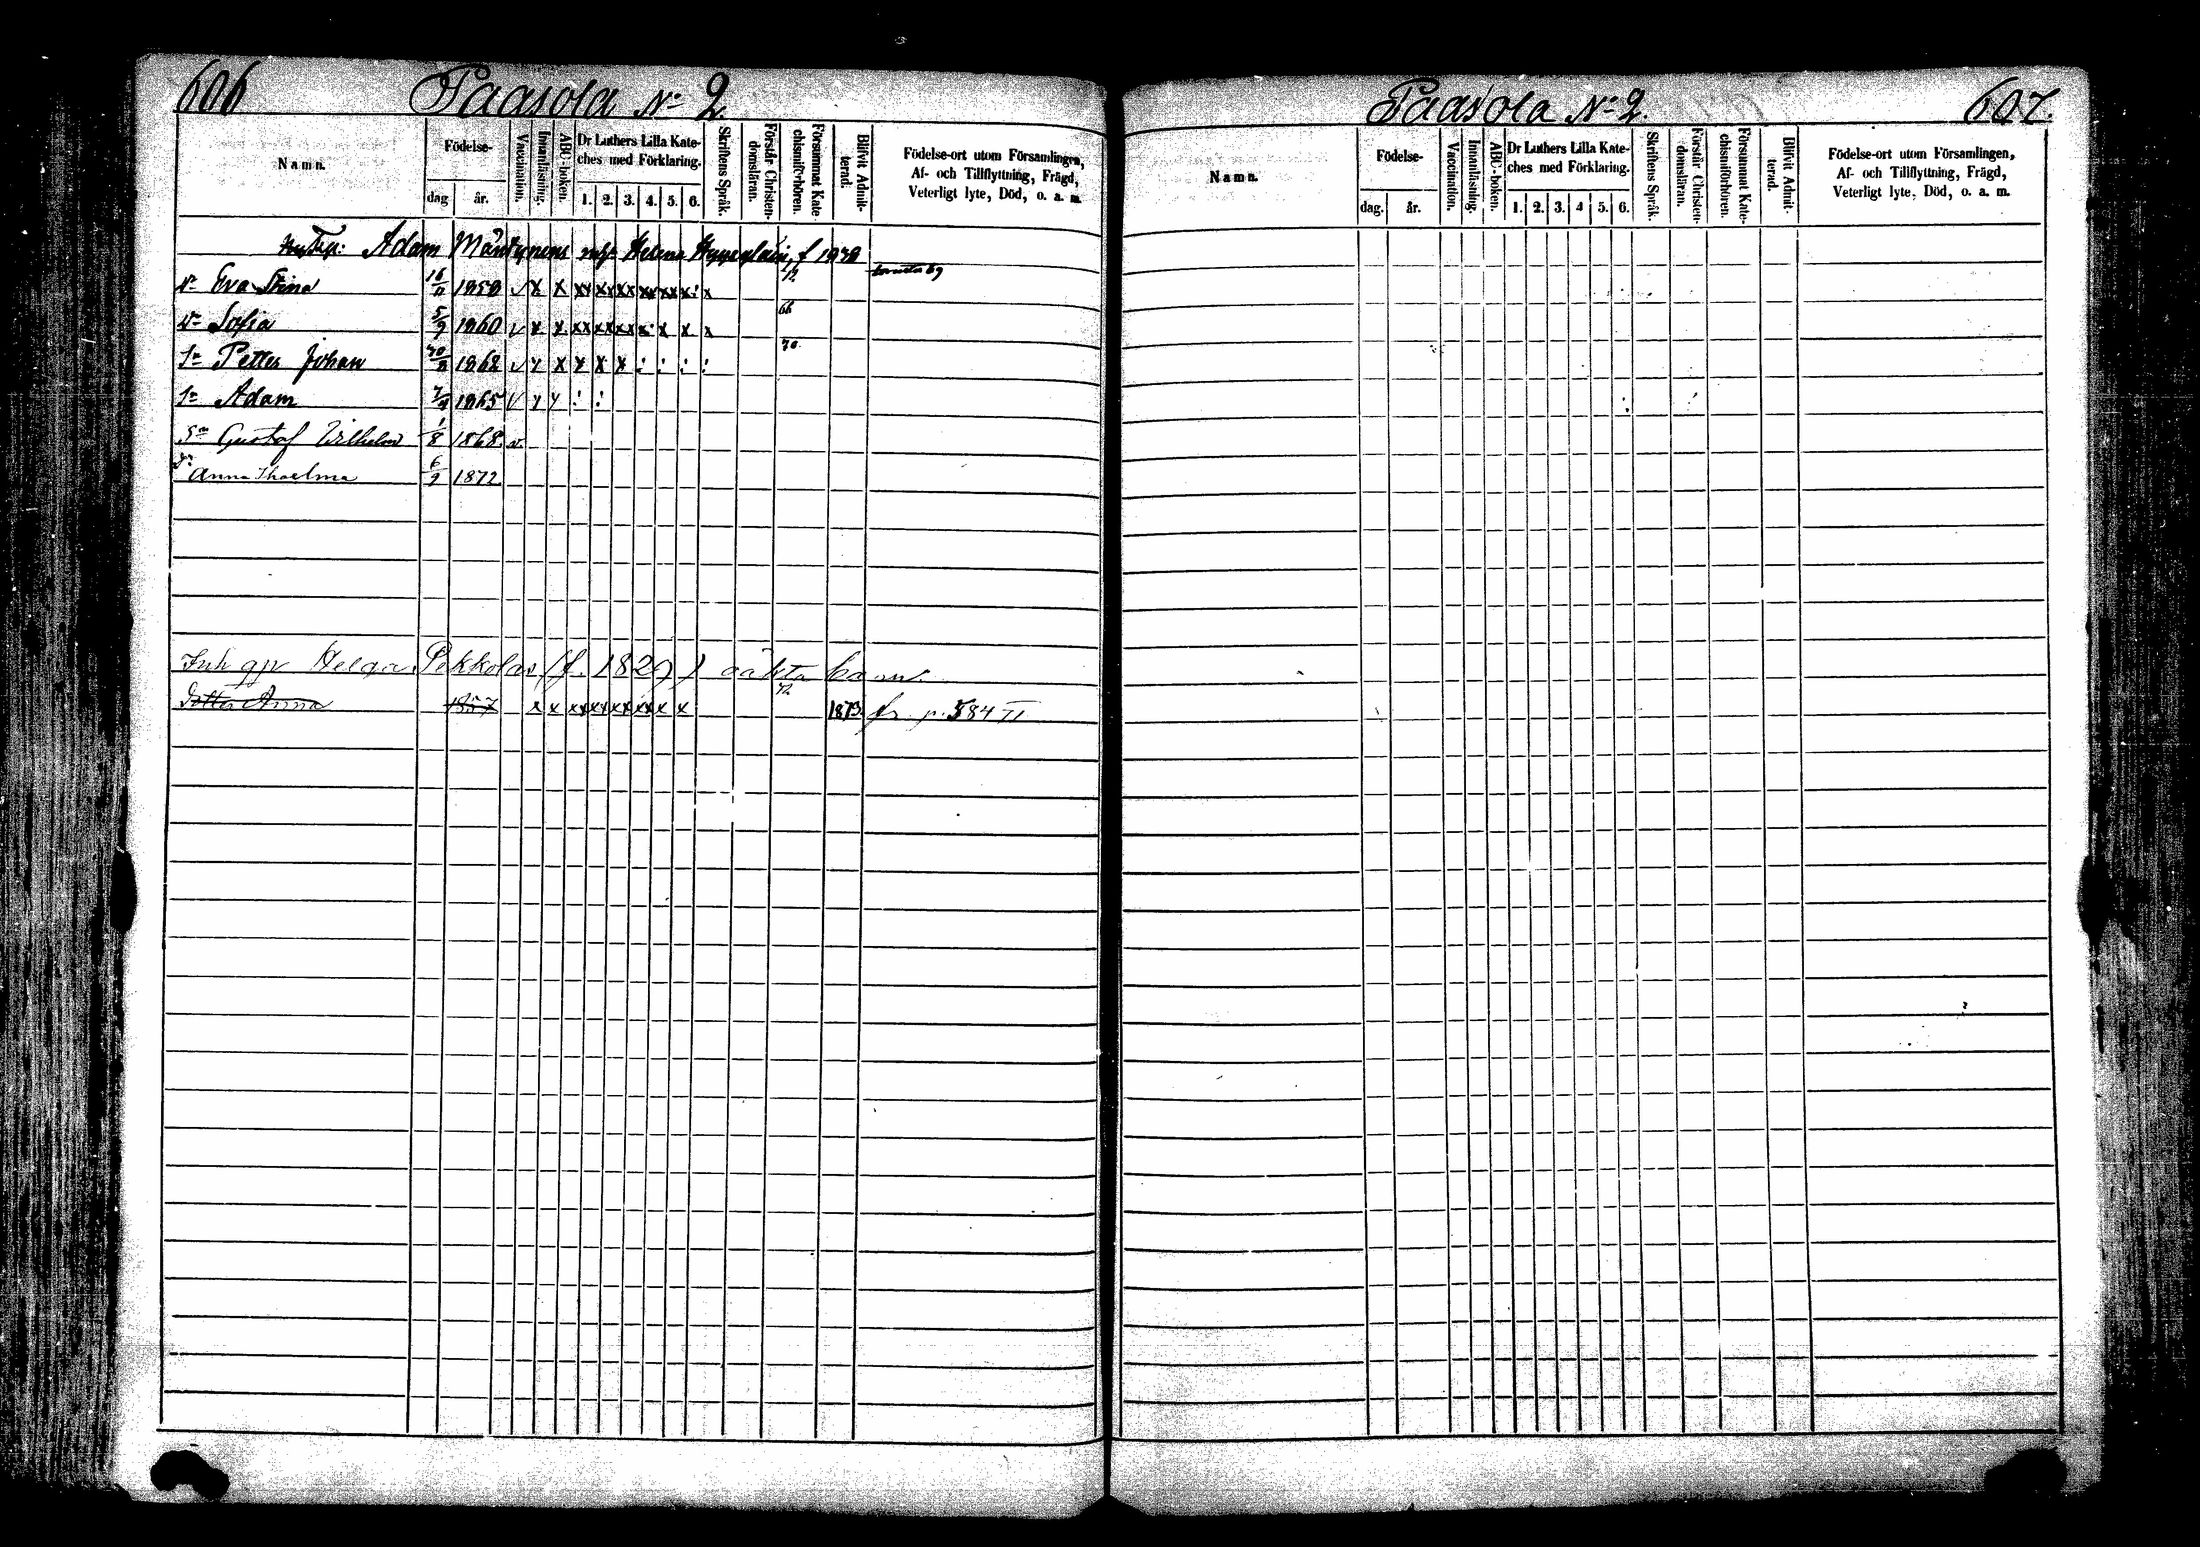 606 Paasola No 2.
Namn. Födelse- dag år. Vaccination. Innanläsning. ABC-boken. Dr Luthers Lilla Kateches med Förklaring. 1. 2. 3. 4. 5. 6. Skriftens Språk. Förstår Christendomsläran. Försummat Katechismiförhören. Blifvit Admitterad. Födelse-ort utom Församlingen, Af- och Tillflyttning, Frägd, Veterligt lyte, Död, o. a. m.
Adam Mäntynens Helena
Dr Eva Stina 16/11 1858 v x x xx xx xx xx xx x: x 72
Dr Sofia 5/9 1860 v x x xx xx xx x: x x x 66
Sn Petter Johan 1862 v x x x x x : : : : 70
Sn Adam 1865 v x x : :
Sn Gustaf Wilhelm 1/8 1868 v.
Dr Anna 6/9 1872
Inh Helga Pekkolas (f. 1829) oäkta barn
Dotter Anna 1857 x x xx xx xx xx x x 72 1873 fr. p. 584 II
Paasola No 2. 607.
Namn. Födelse- dag. år. Vaccination. Innanläsning. ABC-boken. Dr Luthers Lilla Kateches med Förklaring. 1. 2. 3. 4 5. 6. Skriftens Språk. Förstår Christendomsläran. Försummat Katechismiförhören. Blifvit Admitterad. Födelse-ort utom Församlingen, Af- och Tillflyttning, Frägd, Veterligt lyte, Död, o. a. m.